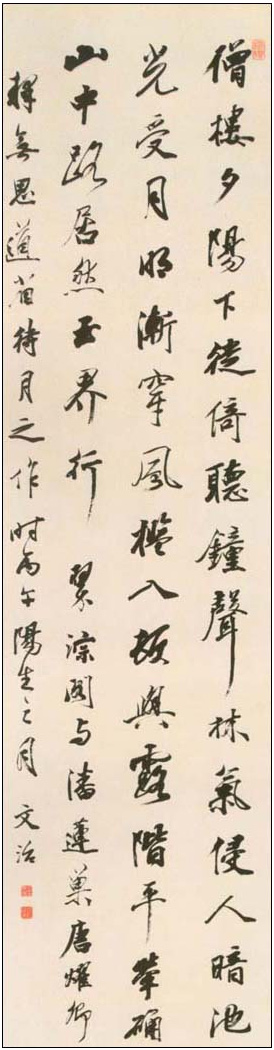 僧樓夕陽下徙倚聽鐘聲林氣侵人暗池
光受月明漸穿風檻入頓與露階平犖确
山中路居然玉界行 翠淙閣与潘蓮巢唐耀卿
釋無思待月之作时丙午陽生之月 文治